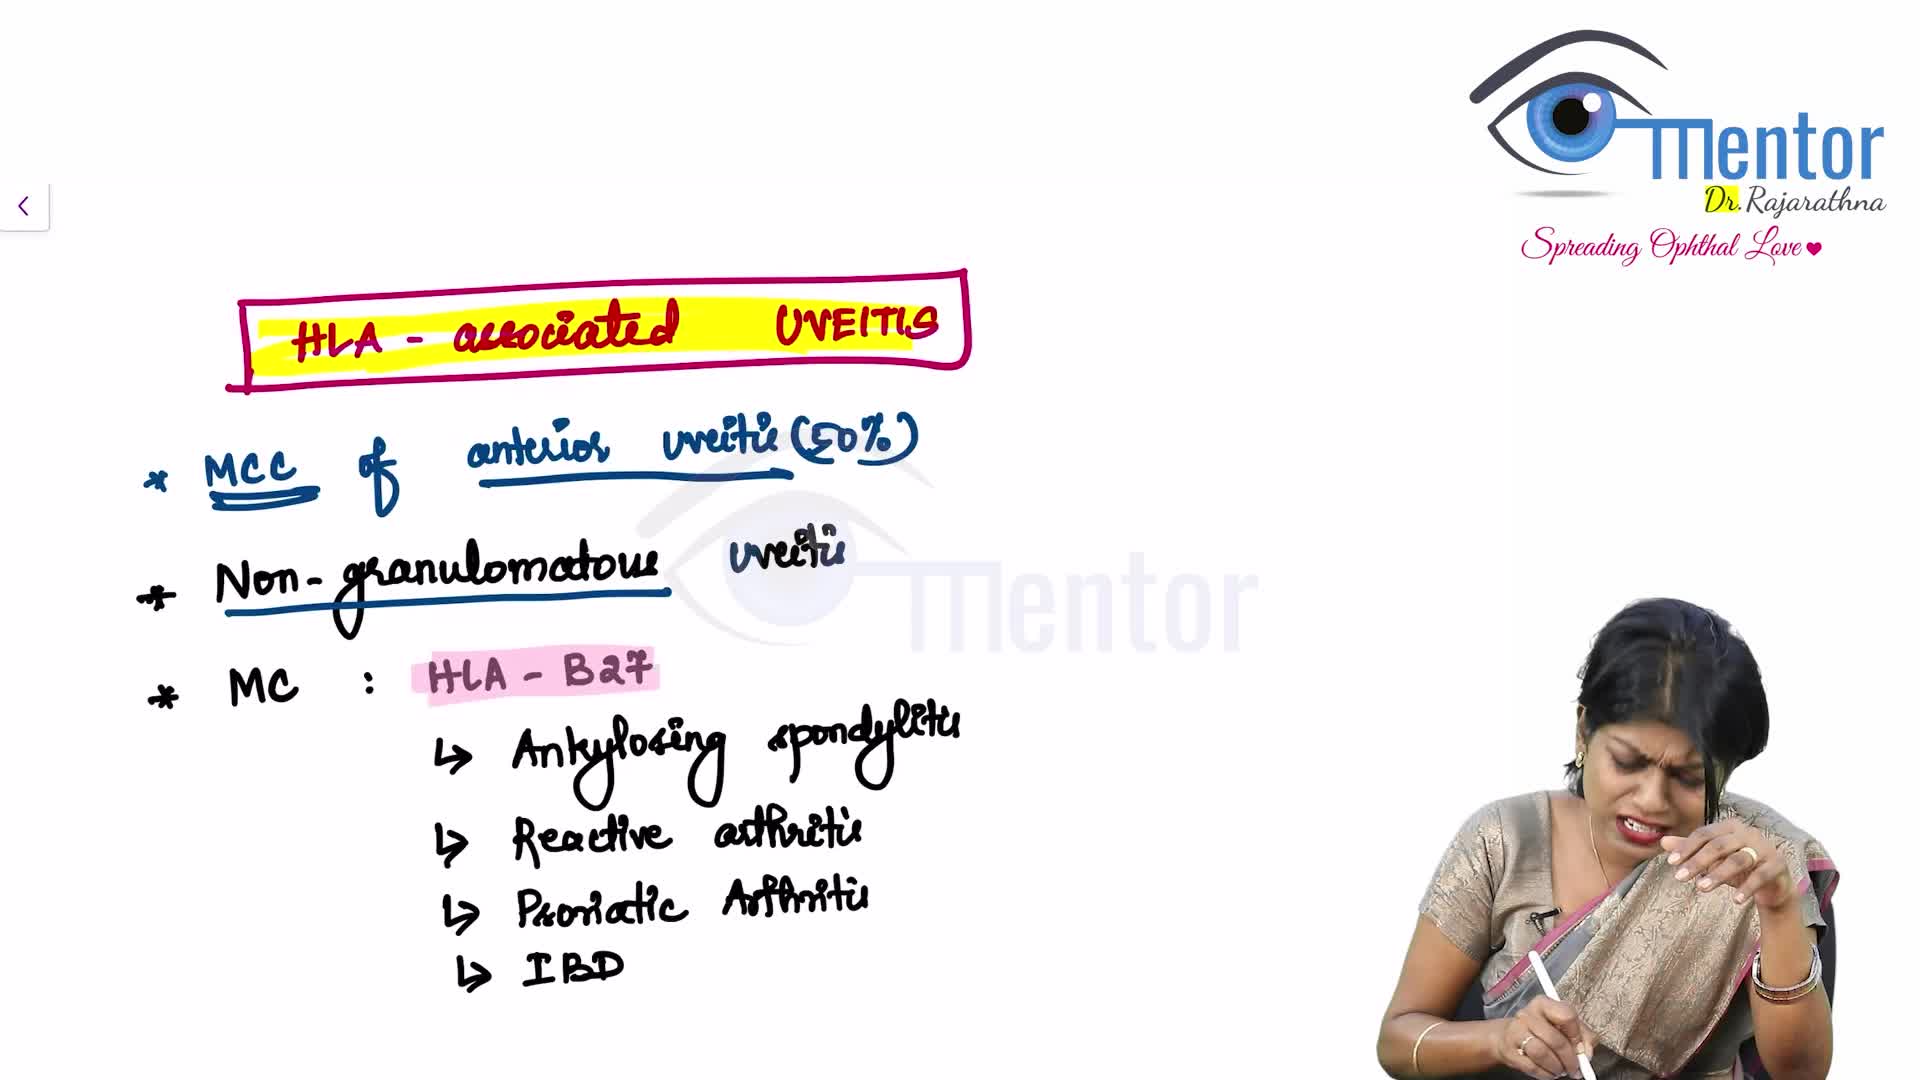 mentor
Dr. Rajarathna
Spreading Ophthal Love
HLA - associated UVEITIS
* MCC of anterior uveitis (50%)
* Non-granulomatous uveitis
mentor
* MC : HLA - B27
↳ Ankylosing spondylitis
↳ Reactive arthritis
↳ Psoriatic Arthritis
↳ IBD